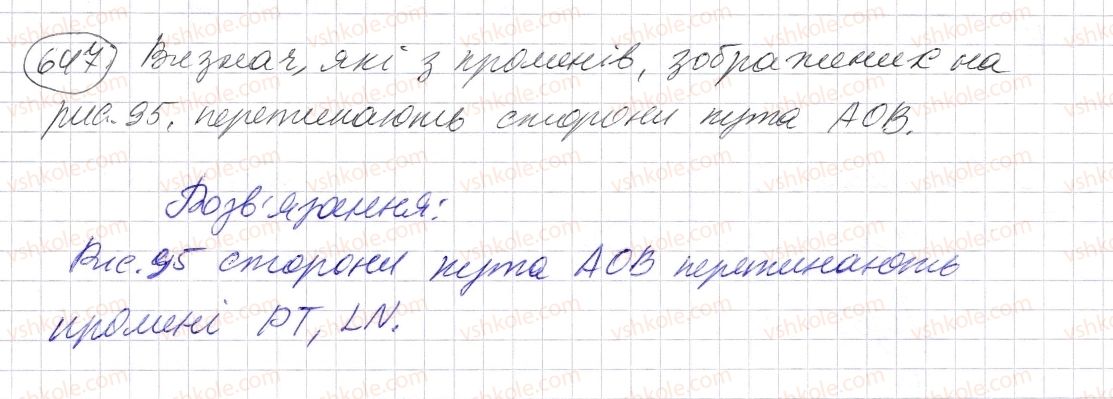 647) Визнач, які з променів, зображених на
рис. 95, перетинають сторони кута АОВ.
Розв'язання:
Рис. 95 сторони кута АОВ перетинають
промені РТ, LN.